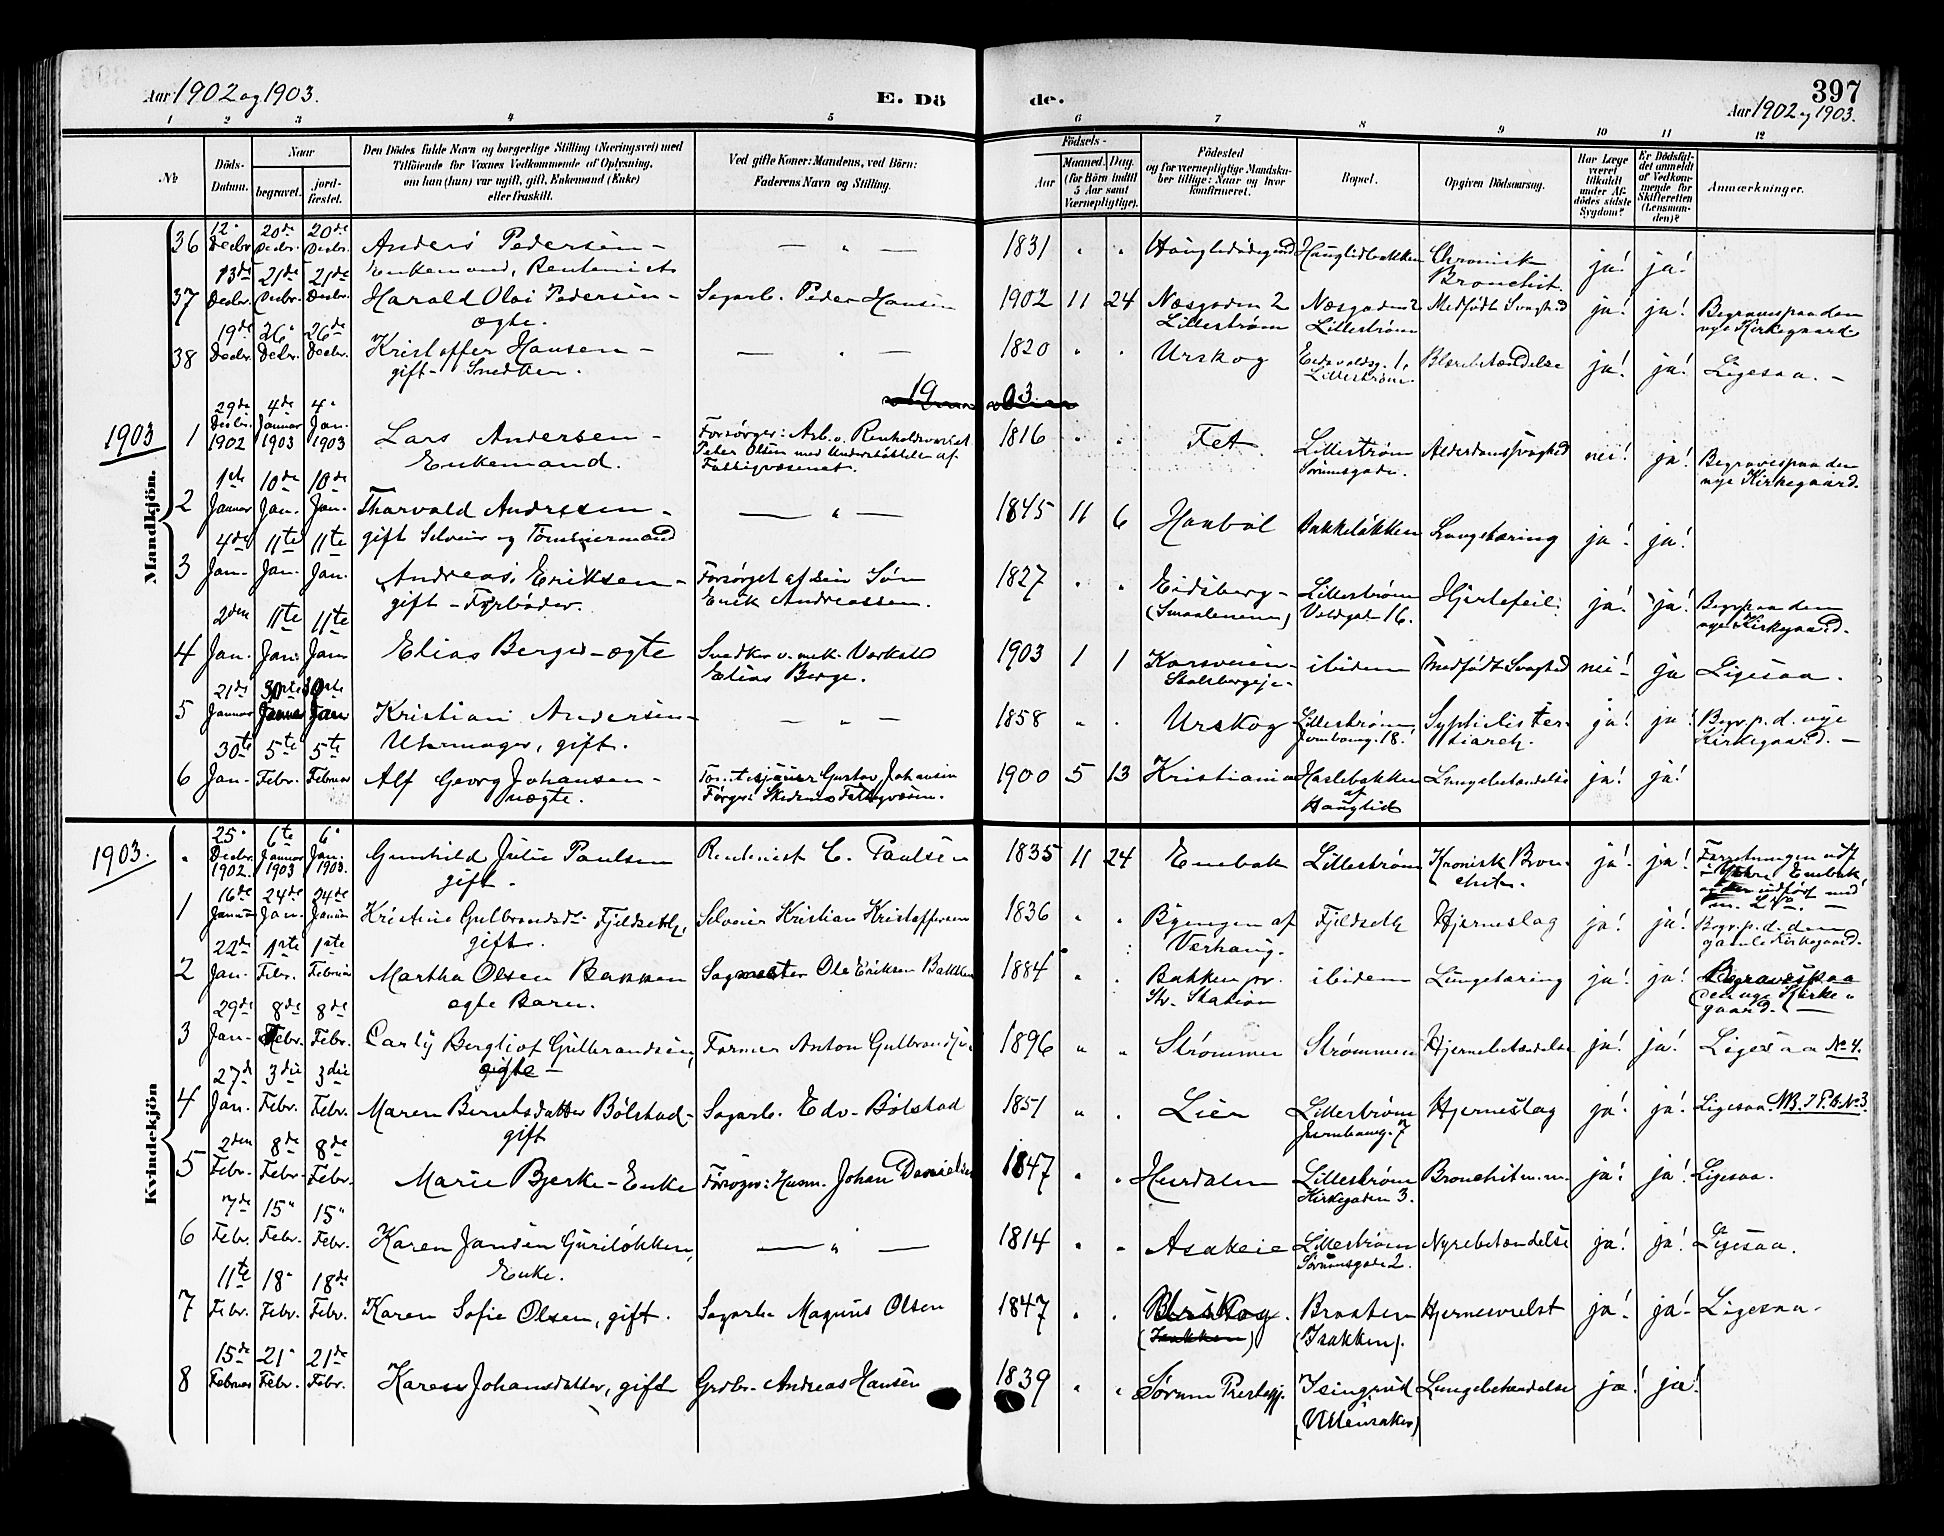 Aar 1902 og 1903.
E. Dö
de.
397
Aar 1902 og 1903.
1 2 3 4 5 6 7 8 9 10 11 12
No
Döds-Datum.
Naar
begravet.
jord-fæstet.
Den Dödes fulde Navn og borgerlige Stilling (Næringsvei) med
Tilföiende for Voxnes Vedkommende af Oplysning,
om han (hun) var ugift, gift, Enkemand (Enke)
eller fraskilt.
Ved gifte Koner: Mandens, ved Börn:
Faderens Navn og Stilling.
Födsels-
Aar
Maaned. Dag.
(for Börn indtil
5 Aar samt
Værnepligtige).
Födested
og for værnepligtige Mandska-
ber tillige: Naar og hvor
konfirmeret.
Bopæl.
Opgiven Dödsaarsag.
Har Læge
været
tilkaldt
under Af-
dödes sidste
Sygdom?
Er Dödsfal-
det anmeldt
af Vedkom-
mende for
Skifteretten
(Lensman-
den)?
Anmærkninger.
Mandkjön.
36 12. Decbr. 20de Decbr. 20de Decbr. Anders Pedersen - Enkemand, Rentenist — " — 1831 " " Hauglidbakken Chronisk Bronchit. ja! ja!
37 13de Decbr. 21de Decbr. 21de Decbr. Harald Olai Pedersen - ægte. Sagarb. Peder Hansen 1902 11 24 Næsgaden 2 Lillestrøm Næsgaden 2 Lillestrøm Medfødt Svaghed ja! ja! Begraves paa den nye Kirkegaard
38 19de Decbr. 26. Decbr. 26de Decbr. Kristoffer Hansen - gift - Snedker. — " — 1820 " " Urskog Eidsvoldsg. 1, Lillestrøm Blærebetændelse ja! ja! Ligesaa. -
1903.
1903
1 29de Decbr. 1902 4de Januar 1903 4. Jan. 1903 Lars Andersen - Enkemand. Forsørger: Arb. v. Renholdsværket Peter Olsen med Understøttelse af Fattigvæsenet. 1816 " " Fet Lillestrøm Sørumsgade. Alderdomssvaghed nei! ja! Begraves paa den nye Kirkegaard.
2 1ste Januar 10de Jan. 10de Jan. Thorvald Andresen - gift Selveier og Tømmermand — " — 1845 11 6 Haabøl Bakkeløkken Lungetæring ja! ja!
3 4de Jan. 11te Jan. 11te Jan. Andreas Eriksen - gift - Fyrbøder. Forsørget af sin Søn Erik Andreassen. 1827 " " Eidsberg - (Smaalenene) Lillestrøm Voldgade 16. Hjertefeil. ja! ja! Begr. paa den nye Kirkegaard.
4 2den Jan. 11te Jan. 11te Jan. Elias Berge - ægte Snedker v. mek. Værksted Elias Berge. 1903 1 1 Korsveien - Stalsbergeje - ibidem Medfødt Svaghed nei! ja Ligesaa.
5 21de Januar 30te Januar 30te Jan. Kristian Andersen - Uhrmager, gift. — " — 1858 " " Urskog Lillestrøm Jernbaneg. 18. Syphilis tertiaer. ja! ja! Begr. p. d. nye Kirkegaard. -
6 30te Jan. 5te Febr. 5te Februar Alf Georg Johansen - uægte. Gustav Johansen Fattigvæsen. 1900 5 13 Kristiania Haslebakken af Hauglid Lungebetændelse ja! ja!
Kvindekjön
1903.
" 25. Decbr. 1902. 6te Januar 1903 6. Jan. 1903. Gunhild Julie Paulsen gift. Rentenist C. Paulsen 1835 11 24 Enebak Lillestrøm Kronisk Bronchit. ja! ja! Forretningen udf. i Ytre Enebak
1 16de Januar 24de Jan. 24de Januar Kristine Gulbrandsdt. Fjeldseth, gift. Selveier Kristian Kristoffersen 1836 " " Bjengen af Værhaug. Fjeldseth Hjerneslag ja! ja! Begr. p. d. den gamle Kirkegaard.
2 22de Jan. 1ste Febr. 1ste Februar Martha Olsen Bakken ægte Barn. Sagmester Ole Eriksen Bakken 1884 " " Bakken pr. Str. Station ibidem Lungetæring ja! ja! Begraves paa den nye Kirkegaard. -
3 29de Jan. 8de Febr. 8de Febr. Carly Bergliot Gulbrandsen, ægte - Former Anton Gulbrandsen 1896 " " Strømmen Strømmen Hjernebetændelse ja! ja! Ligesaa No 4.
4 27d Jan. 3die Febr. 3die Febr. Maren Berntsdatter Bølstad - gift Sagarb. Edv. Bølstad 1851 " " Lier Lillestrøm Jernbaneg. 7 Hjerneslag ja! ja! Ligesaa. NB. No 3.
5 2den Febr. 8de Febr. 8de Febr. Marie Bjerke - Enke Forsørger: Husm. Johan Danielsen 1847 " " Hurdalen Lillestrøm Kirkegaden 3. Bronchit m. m. ja! ja! Ligesaa.
6 7de Febr. 15" Febr. 15" Febr. Karen Jansen Guriløkken, Enke. — " — 1814 " " Asakeie Lillestrøm Sørumsgade 2. Nyrebetændelse ja! ja! Ligesaa.
7 11te Febr. 18" Febr. 18de Febr. Karen Sofie Olsen, gift. Sagarb. Magnus Olsen 1847 " " Urskog. (Isakken) Braaten (Isakken). Hjernesvulst ja! ja! Ligesaa.
8 15de Februar 21. Febr. 21de Febr. Karen Johansdatter, gift Grdbr. Andreas Hansen 1839 " " Sørum Prestegj. Isingrud (Ullensaker) Lungebetændelse ja! ja!